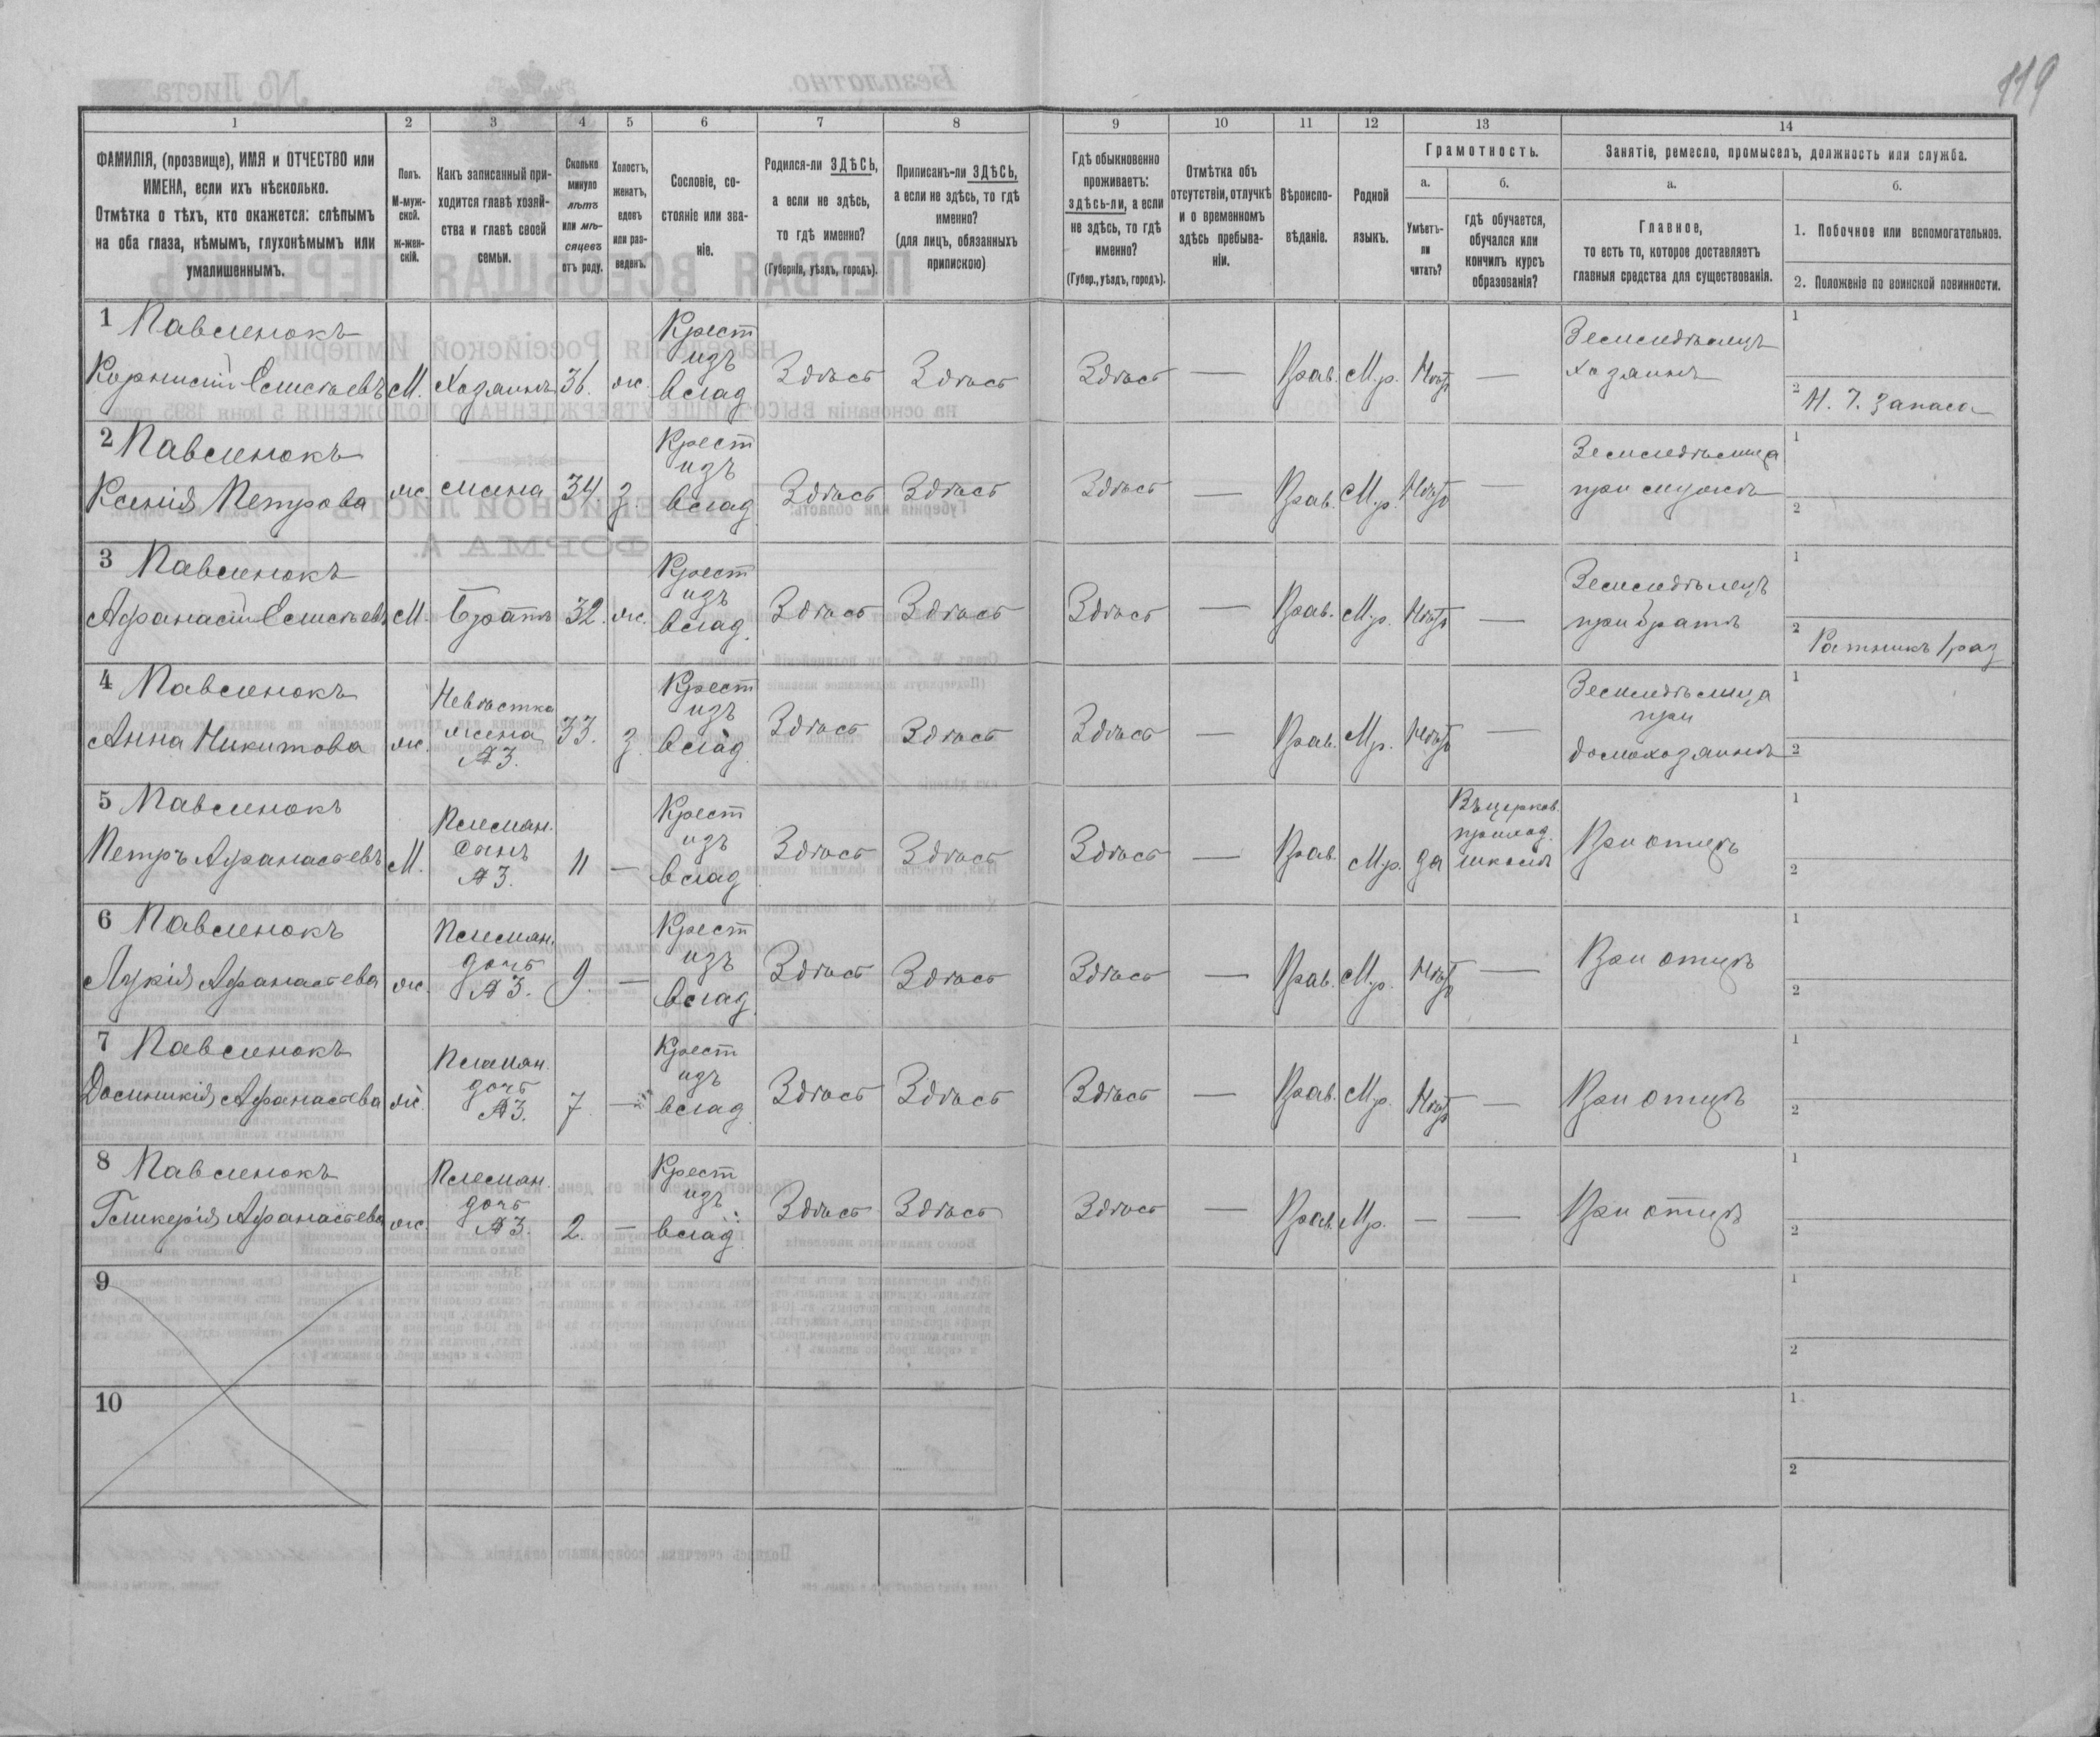 119
1 2 3 4 5 6 7 8 9 10 11 12 13 14
ФАМИЛІЯ, (прозвище), ИМЯ и ОТЧЕСТВО или
ИМЕНА, если ихъ нѣсколько.
Отмѣтка о тѣхъ, кто окажется: слѣпымъ
на оба глаза, нѣмымъ, глухонѣмымъ или
умалишеннымъ.
Полъ.
М-муж-
ской.
Ж-жен-
скій.
Какъ записанный при-
ходится главѣ хозяй-
ства и главѣ своей
семьи.
Сколько
минуло
лѣтъ
или мѣ-
сяцевъ
отъ роду.
Холостъ,
женатъ,
вдовъ
или раз-
веденъ.
Сословіе, со-
стояніе или зва-
ніе.
Родился-ли ЗДѢСЬ,
а если не здѣсь,
то гдѣ именно?
(Губернія, уѣздъ, городъ).
Приписанъ-ли ЗДѢСЬ,
а если не здѣсь, то гдѣ
именно?
(для лицъ, обязанныхъ
припискою)
Гдѣ обыкновенно
проживаетъ:
здѣсь-ли, а если
не здѣсь, то гдѣ
именно?
(Губер., уѣздъ, городъ).
Отмѣтка объ
отсутствіи, отлучкѣ
и о временномъ
здѣсь пребыва-
ніи.
Вѣроиспо-
вѣданіе.
Родной
языкъ.
Грамотность.
а.
Умѣетъ-
ли
читать?
б.
гдѣ обучается,
обучался или
кончилъ курсъ
образованія?
Занятіе, ремесло, промыселъ, должность или служба.
а.
Главное,
то есть то, которое доставляетъ
главныя средства для существованія.
б.
1. Побочное или вспомогательное.
2. Положеніе по воинской повинности.
1 Павленокъ
Корнилій Елисѣевъ М. Хозяинъ 36. ж. Крест
изъ
влад Здѣсь Здѣсь Здѣсь — Прав. М.р. Нѣтъ — Земледѣлецъ
хозяинъ
1
2 Н. Ч. Запаса
2 Павленокъ
Ксенія Петрова ж жена 34. з. Крест
изъ
влад Здѣсь Здѣсь Здѣсь — Прав. М.р. Нѣтъ — Земледѣлица
при мужѣ
1
2
3 Павленокъ
Афанасій Елисѣевъ М. Братъ 32. ж. Крест
изъ
влад. Здѣсь Здѣсь Здѣсь — Прав. М.р. Нѣтъ — Земледѣлецъ
при братѣ
1
2 Ратникъ 1 раз
4 Павленокъ
Анна Никитова ж. Невѣстка
жена
№ 3. 33. з. Крест
изъ
влад. Здѣсь Здѣсь Здѣсь — Прав. М.р. Нѣтъ — Земледѣлица
при
домохозяинѣ
1
2
5 Павленокъ
Петръ Афанасьевъ М. Племян.
сынъ
№ 3. 11 — Крест
изъ
влад Здѣсь Здѣсь Здѣсь — Прав. М.р. да Въ церков.
приход.
школѣ При отцѣ
1
2
6 Павленокъ
Лукія Афанасьева ж. Племян.
дочь
№ 3. 9. — Крест
изъ
влад Здѣсь Здѣсь Здѣсь — Прав. М.р. Нѣтъ — При отцѣ
1
2
7 Павленокъ
Домникія Афанасьева ж. Племян.
дочь
№ 3. 7. — Крест
изъ
влад Здѣсь Здѣсь Здѣсь — Прав. М.р. Нѣтъ — При отцѣ
1
2
8 Павленокъ
Гликерія Афанасьева ж. Племян.
дочь
№ 3. 2. — Крест
изъ
влад. Здѣсь Здѣсь Здѣсь — Прав. М.р. — — При отцѣ
1
2
9
1
2
10
1
2